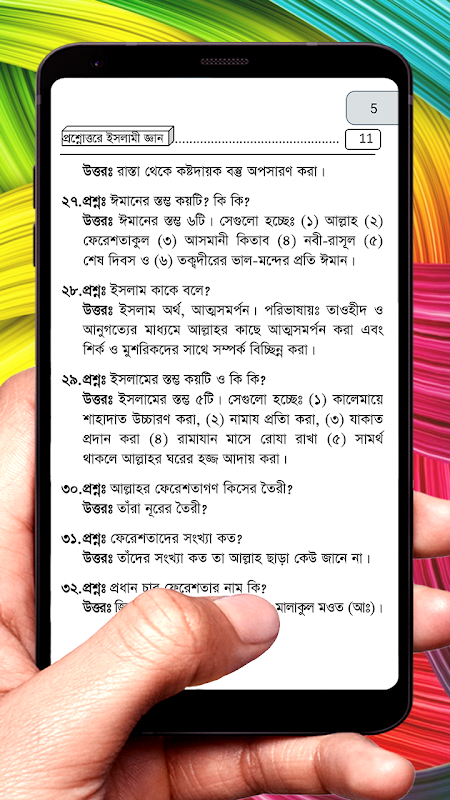 5
প্রশ্নোত্তরে ইসলামী জ্ঞান ........................................ 11
উত্তরঃ রাস্তা থেকে কষ্টদায়ক বস্তু অপসারণ করা।
২৭.প্রশ্নঃ ঈমানের স্তম্ভ কয়টি? কি কি?
উত্তরঃ ঈমানের স্তম্ভ ৬টি। সেগুলো হচ্ছেঃ (১) আল্লাহ (২)
ফেরেশতাকুল (৩) আসমানী কিতাব (৪) নবী-রাসূল (৫)
শেষ দিবস ও (৬) তক্বদীরের ভাল-মন্দের প্রতি ঈমান।
২৮.প্রশ্নঃ ইসলাম কাকে বলে?
উত্তরঃ ইসলাম অর্থ, আত্মসমর্পন। পরিভাষায়ঃ তাওহীদ ও
আনুগত্যের মাধ্যমে আল্লাহর কাছে আত্মসমর্পন করা এবং
শির্ক ও মুশরিকদের সাথে সম্পর্ক বিচ্ছিন্ন করা।
২৯.প্রশ্নঃ ইসলামের স্তম্ভ কয়টি ও কি কি?
উত্তরঃ ইসলামের স্তম্ভ ৫টি। সেগুলো হচ্ছেঃ (১) কালেমায়ে
শাহাদাত উচ্চারণ করা, (২) নামায প্রতিা করা, (৩) যাকাত
প্রদান করা (৪) রামাযান মাসে রোযা রাখা (৫) সামর্থ
থাকলে আল্লাহর ঘরের হজ্জ আদায় করা।
৩০.প্রশ্নঃ আল্লাহর ফেরেশতাগণ কিসের তৈরী?
উত্তরঃ তাঁরা নূরের তৈরী?
৩১.প্রশ্নঃ ফেরেশতাদের সংখ্যা কত?
উত্তরঃ তাঁদের সংখ্যা কত তা আল্লাহ ছাড়া কেউ জানে না।
৩২.প্রশ্নঃ প্রধান চার ফেরেশতার নাম কি?
উত্তরঃ মালাকুল মওত (আঃ)।